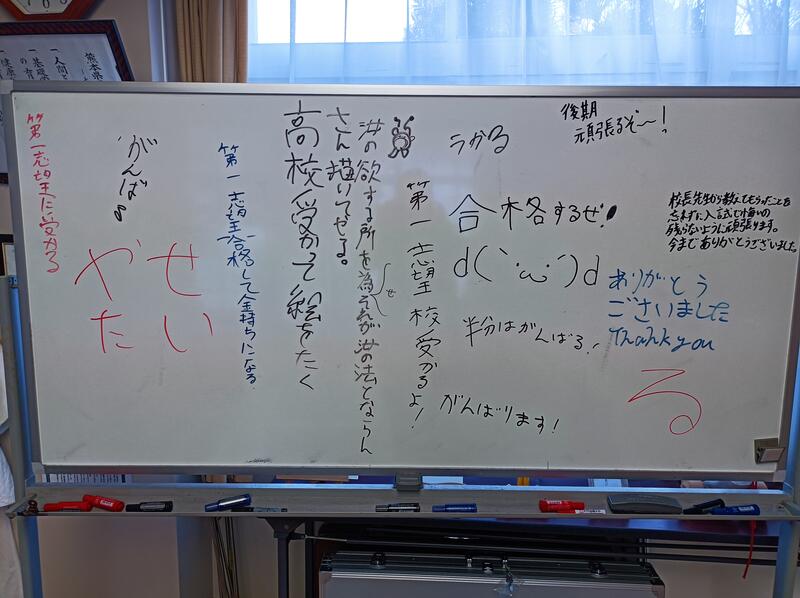 熊本県
一 人間と
一 基礎
一 健康
第一志望に受かる
がんばる
やせ
たい
第一志望合格して金持ちになる
高校受かって絵をたく
さん描いてやる。
汝の欲する所を為せそれが汝の法とならん
第一志望校受かるよ!
うかる
合格するぜ!
d(`・ω・´)d
半分はがんばる!
がんばります!
後期
頑張るぞ〜!
校長先生から教えてもらったことを
忘れずに入試で悔いの
残らないように頑張ります。
今までありがとうございました。
ありがとう
ございました
Thank you
る